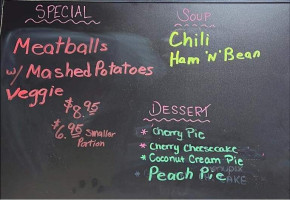 SPECIAL
Meatballs
w/ Mashed Potatoes
Veggie
$8.95
$6.95 Smaller
Portion
SOUP
Chili
Ham 'N' Bean
DESSERT
* Cherry Pie
* Cherry Cheesecake
* Coconut Cream Pie
Peach Pie